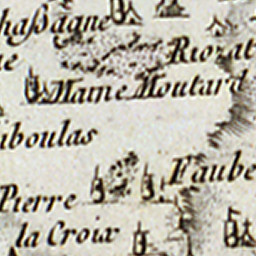 haßagne
Riozat
e
Maine Moutard
boulas
Faube
Pierre
la Croix